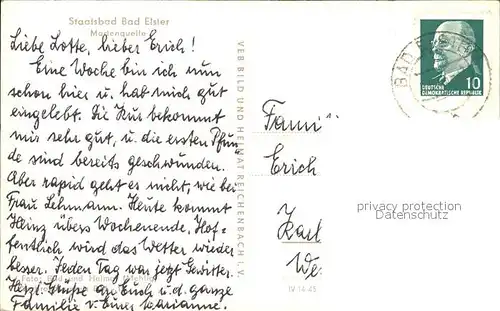 Staatsbad Bad Elster
Marienquelle
Liebe Lotte, lieber Erich!
Eine Woche bin ich nun
schon hier u. hab mich gut
eingelebt. Die Kur bekommt
mir sehr gut, u. die ersten Pfun-
de sind bereits geschwunden.
Aber rapid geht es nicht, wie bei
Frau Lehmann. Heute kommt
Heinz übers Wochenende, Hof-
fentlich wird das Wetter wieder
besser. Jeden Tag war jetzt Gewitter.
Herzl. Grüße an Euch u. d. ganze
Familie v. Eurer Marianne.
Foto: Bild und Heimat
VEB BILD UND HEIMAT REICHENBACH I. V.
IV 14-45
BAD
10
DEUTSCHE
DEMOKRATISCHE REPUBLIK
Fami
Erich
Karl
We
privacy protection